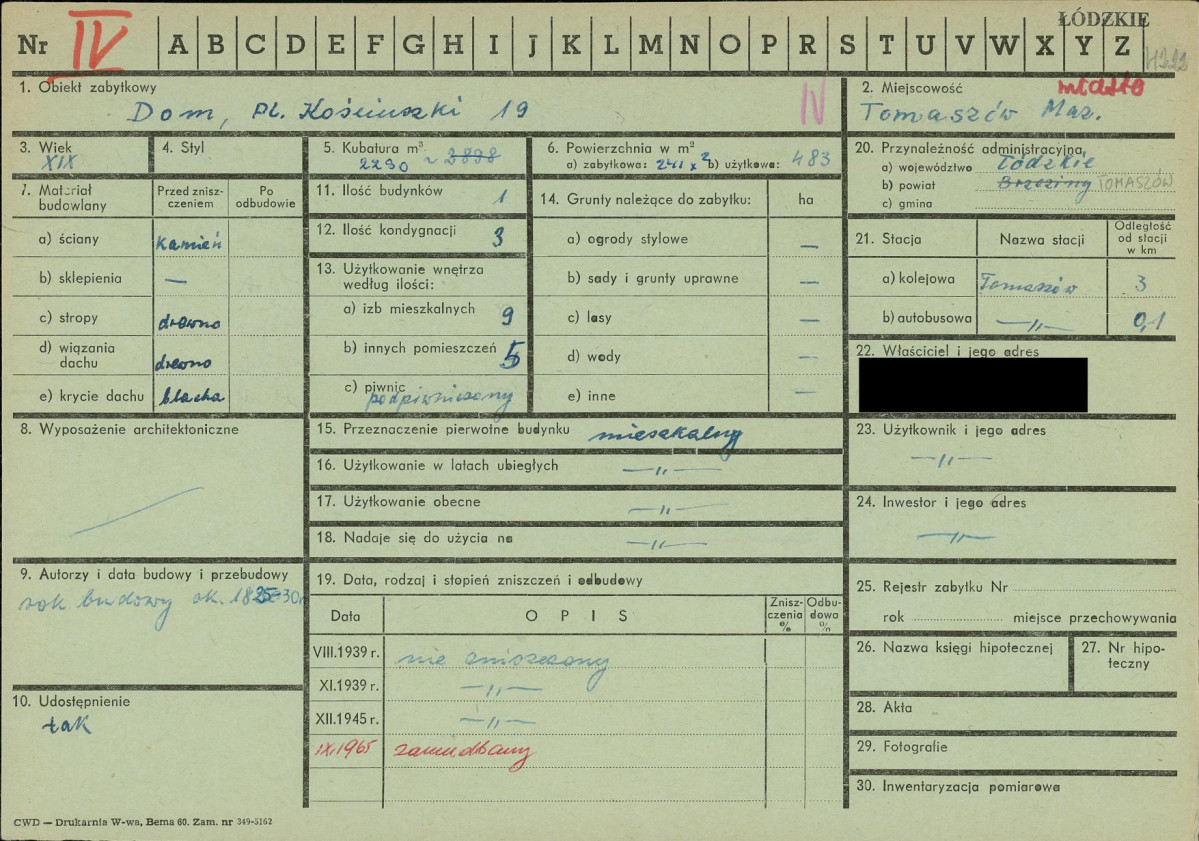 ŁÓDZKIE
Nr IV A B C D E F G H I J K L M N O P R S T U V W X Y Z
1. Obiekt zabytkowy
Dom, Pl. Kościuszki 19
IV
2. Miejscowość miasto
Tomaszów Maz.
3. Wiek
XIX
4. Styl
5. Kubatura m³
2290 ~ 2898
6. Powierzchnia w m²
a) zabytkowa: 241 x 2 b) użytkowa: 483
20. Przynależność administracyjna
a) województwo Łódzkie
b) powiat Brzeziny TOMASZÓW
c) gmina
7. Materiał budowlany
Przed zniszczeniem
Po odbudowie
a) ściany kamień
b) sklepienia —
c) stropy drewno
d) wiązania dachu drewno
e) krycie dachu blacha
11. Ilość budynków 1
12. Ilość kondygnacji 3
13. Użytkowanie wnętrza
według ilości:
a) izb mieszkalnych 9
b) innych pomieszczeń 5
c) piwnic
podpiwniczony
14. Grunty należące do zabytku: ha
a) ogrody stylowe —
b) sady i grunty uprawne —
c) lasy —
d) wody —
e) inne —
21. Stacja
Nazwa stacji
Odległość od stacji w km
a) kolejowa Tomaszów 3
b) autobusowa —"— 0,1
22. Właściciel i jego adres
8. Wyposażenie architektoniczne
15. Przeznaczenie pierwotne budynku mieszkalny
16. Użytkowanie w latach ubiegłych —"—
17. Użytkowanie obecne —"—
18. Nadaje się do użycia na —"—
23. Użytkownik i jego adres
—"—
24. Inwestor i jego adres
—"—
9. Autorzy i data budowy i przebudowy
rok budowy ok. 1825-30r
19. Data, rodzaj i stopień zniszczeń i odbudowy
Data
O P I S
Zniszczenia %
Odbudowa %
VIII.1939 r. nie zniszczony
XI.1939 r. —"—
XII.1945 r. —"—
IX.1965 zaniedbany
25. Rejestr zabytku Nr
rok miejsce przechowywania
26. Nazwa księgi hipotecznej
27. Nr hipoteczny
10. Udostępnienie
tak
28. Akta
29. Fotografie
30. Inwentaryzacja pomiarowa
CWD — Drukarnia W-wa, Bema 60. Zam. nr 349-5162